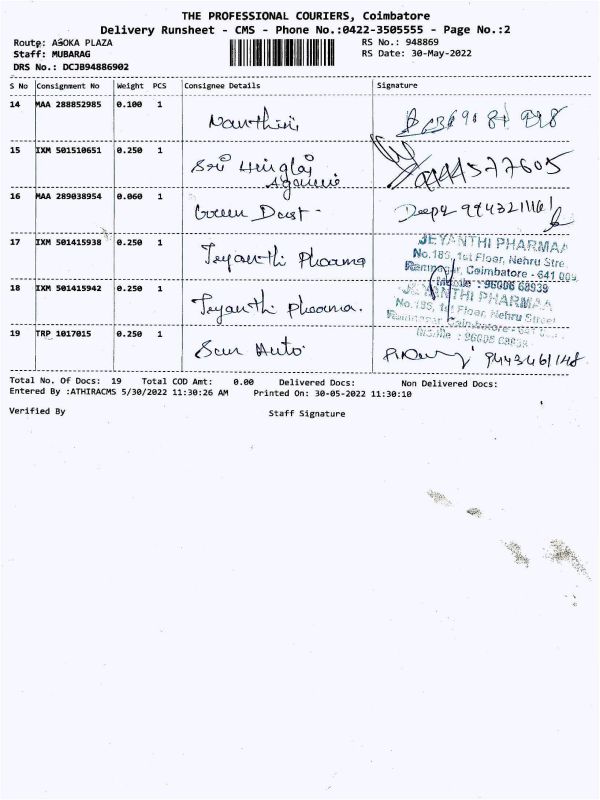 THE PROFESSIONAL COURIERS, Coimbatore
Delivery Runsheet - CMS - Phone No.:0422-3505555 - Page No.:2
Route: ASOKA PLAZA RS No.: 948869
Staff: MUBARAG RS Date: 30-May-2022
DRS No.: DCJB94886902
S No Consignment No Weight PCS Consignee Details Signature
14 MAA 288852985 0.100 1 Nanthini
15 IXM 501510651 0.250 1 Sri Hinglaj
16 MAA 289038954 0.060 1 Green Dost - Deepa
17 IXM 501415938 0.250 1 Jeyanthi Pharma
JEYANTHI PHARMAA
No.186, 1st Floor, Nehru Stre
Ramnagar, Coimbatore - 641 009
Mobile : 96006 68939
18 IXM 501415942 0.250 1 Jeyanthi Pharma.
JEYANTHI PHARMAA
No.186, 1st Floor, Nehru Street
19 TRP 1017015 0.250 1 Sun Auto 9443461148
Total No. Of Docs: 19 Total COD Amt: 0.00 Delivered Docs: Non Delivered Docs:
Entered By :ATHIRACMS 5/30/2022 11:30:26 AM Printed On: 30-05-2022 11:30:10
Verified By Staff Signature